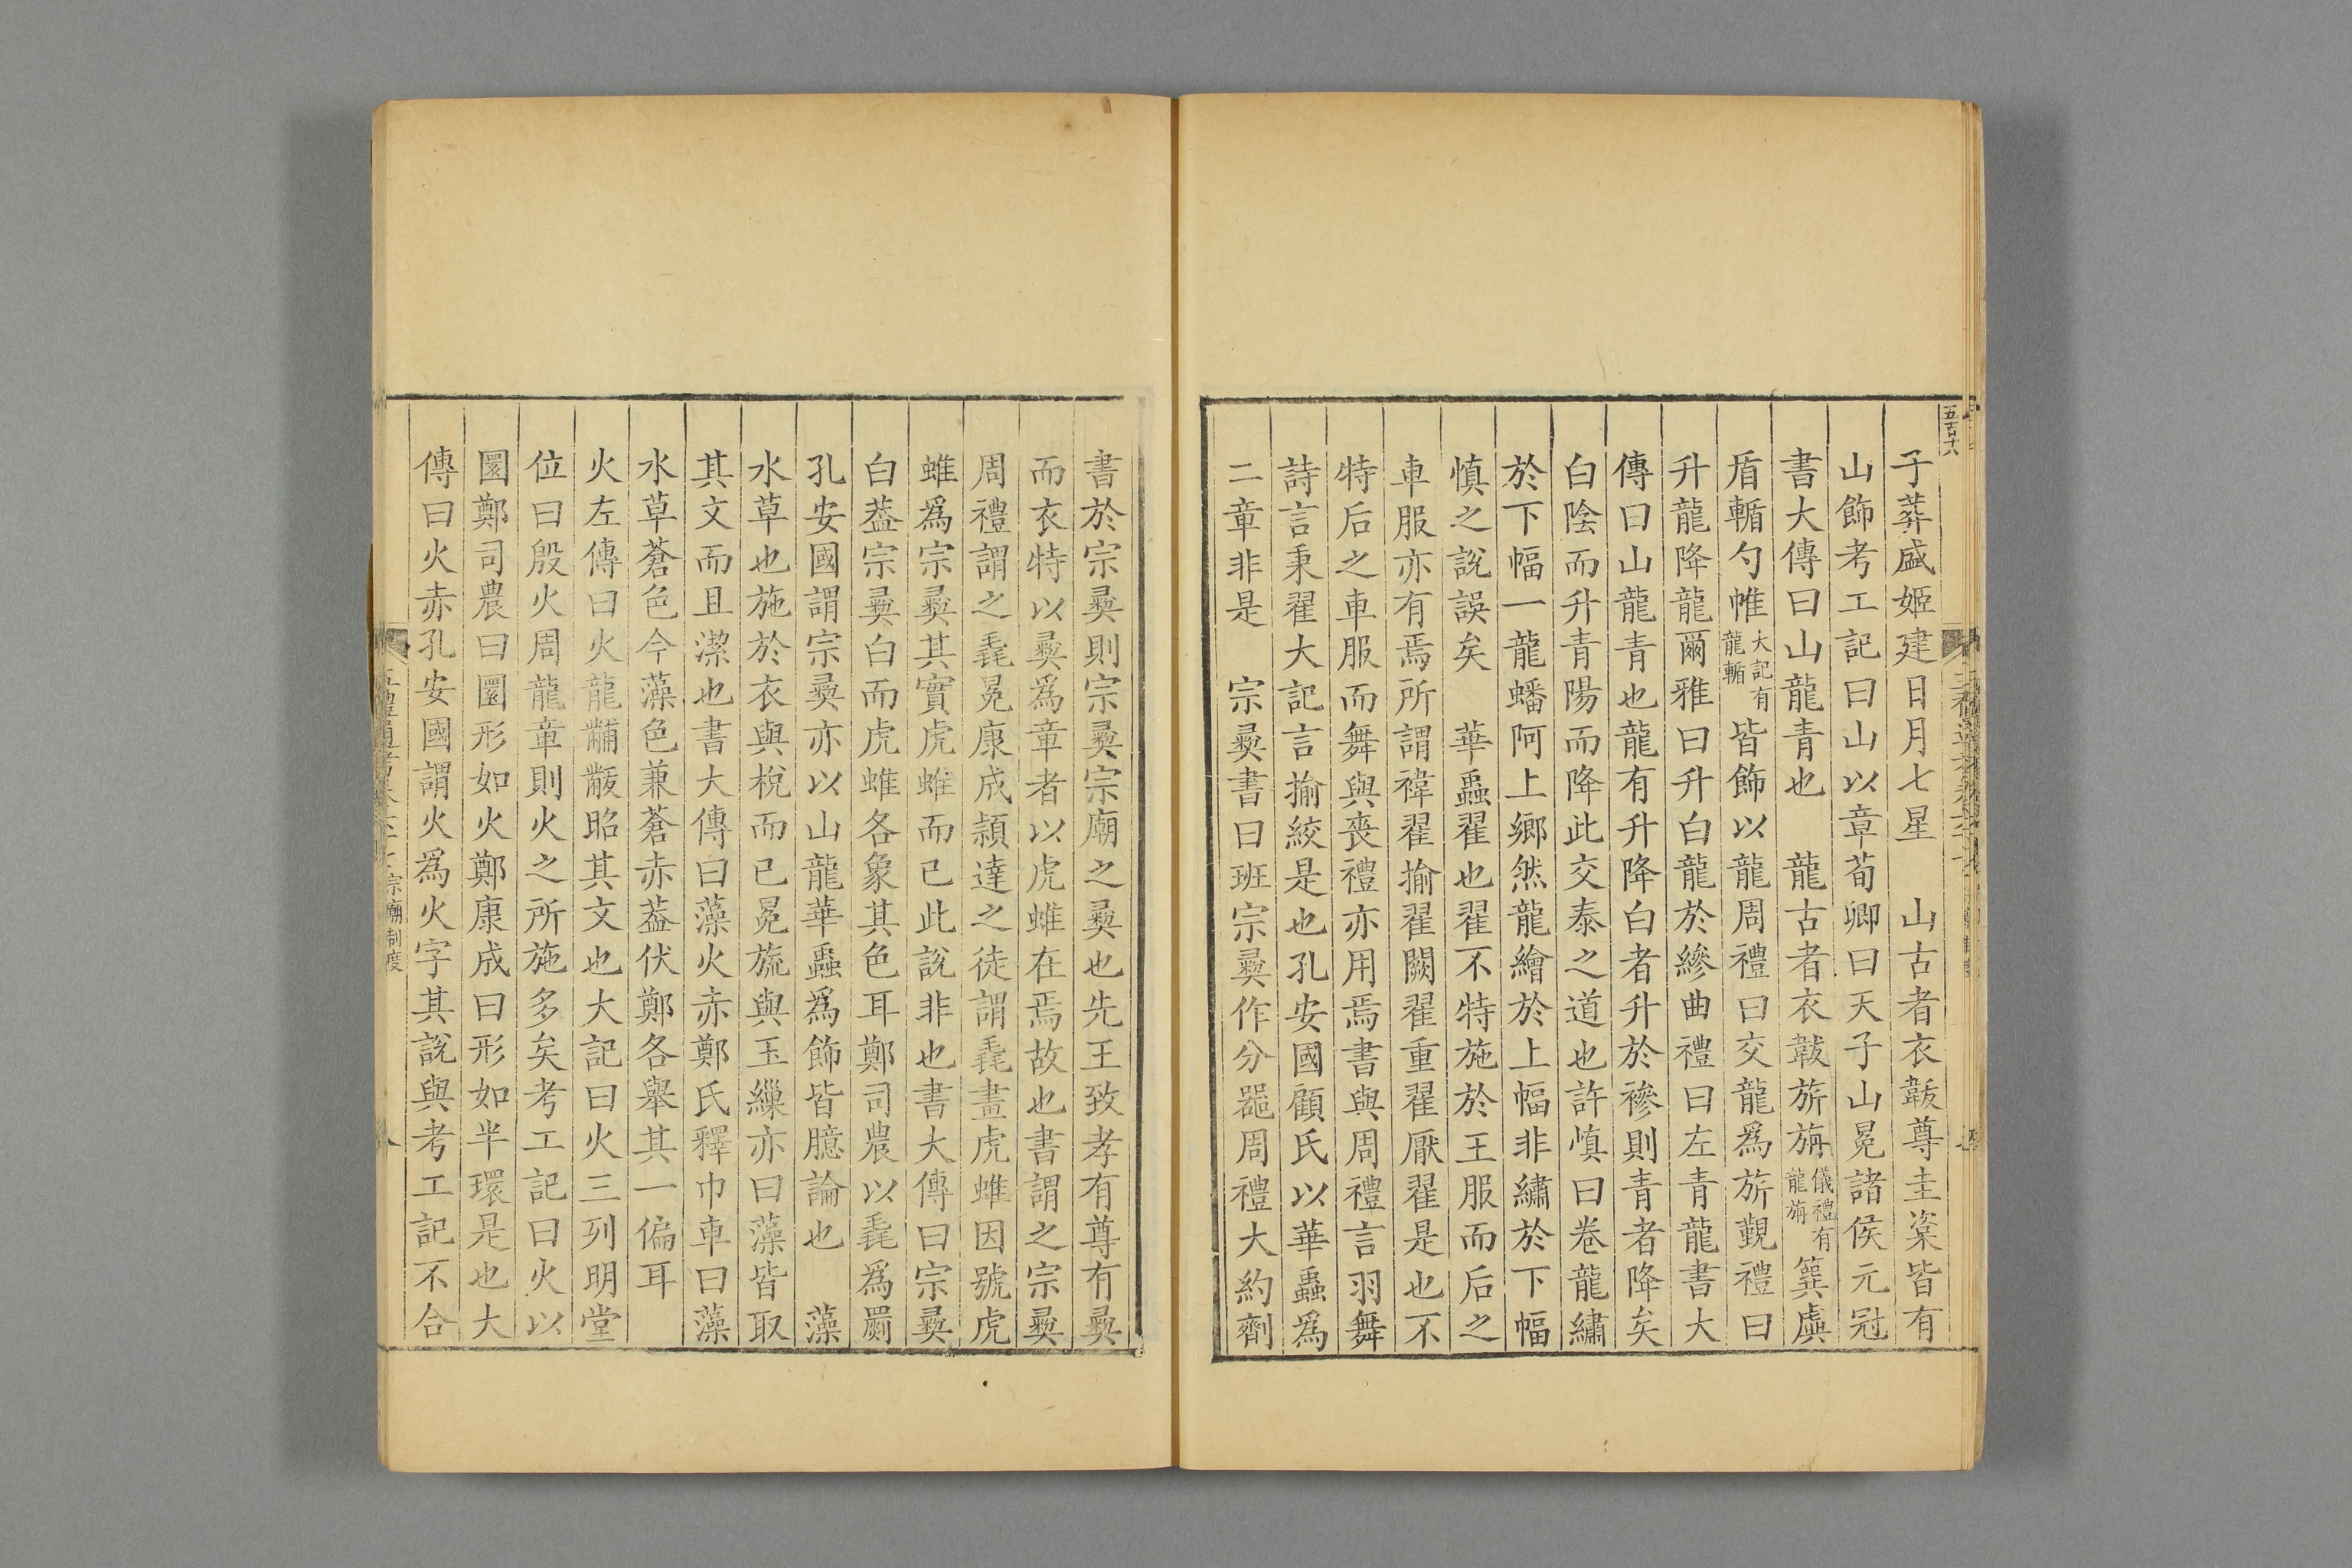 五百十六
子葬盛姬建日月七星　山古者衣韍尊圭楶皆有
山飾考工記曰山以章荀卿曰天子山冕諸侯元冠
書大傳曰山龍青也　龍古者衣韍旂旃儀禮有龍旃簨虡
盾輴勺帷大記有龍輴皆飾以龍周禮曰交龍爲旂覲禮曰
升龍降龍爾雅曰升白龍於縿曲禮曰左青龍書大
傳曰山龍青也龍有升降白者升於縿則青者降矣
白陰而升青陽而降此交泰之道也許慎曰卷龍繡
於下幅一龍蟠阿上鄉然龍繪於上幅非繡於下幅
慎之說誤矣　華蟲翟也翟不特施於王服而后之
車服亦有焉所謂褘翟揄翟闕翟重翟厭翟是也不
特后之車服而舞與喪禮亦用焉書與周禮言羽舞
詩言秉翟大記言揄絞是也孔安國顧氏以華蟲爲
二章非是　宗彝書曰班宗彝作分器周禮大約劑
書於宗彝則宗彝宗廟之彝也先王致孝有尊有彝
而衣特以彝爲章者以虎蜼在焉故也書謂之宗彝
周禮謂之毳冕康成穎達之徒謂毳畫虎蜼因號虎
蜼爲宗彝其實虎蜼而已此說非也書大傳曰宗彝
白葢宗彝白而虎蜼各象其色耳鄭司農以毳爲罽
孔安國謂宗彝亦以山龍華蟲爲飾皆臆論也　藻
水草也施於衣與梲而已冕旒與玉繅亦曰藻皆取
其文而且潔也書大傳曰藻火赤鄭氏釋巾車曰藻
水草蒼色今藻色兼蒼赤葢伏鄭各舉其一偏耳
火左傳曰火龍黼黻昭其文也大記曰火三列明堂
位曰殷火周龍章則火之所施多矣考工記曰火以
圜鄭司農曰圜形如火鄭康成曰形如半環是也大
傳曰火赤孔安國謂火爲火字其說與考工記不合
五禮通考卷六十　宗廟制度　八